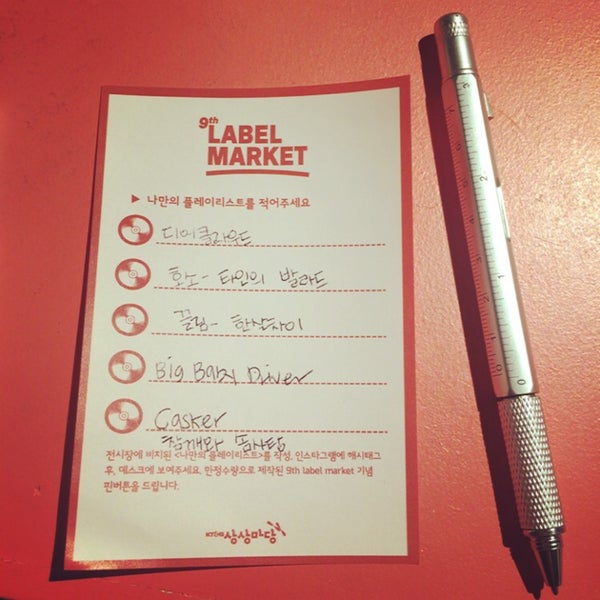 9th
LABEL
MARKET
▶ 나만의 플레이리스트를 적어주세요
디어클라우드
효노 - 타인의 발라드
끌림 - 한살차이
Big Baby Driver
Casker
참깨와 솜사탕
전시장에 비치된 <나만의 플레이리스트>를 작성, 인스타그램에 해시태그
후, 데스크에 보여주세요. 한정수량으로 제작된 9th label market 기념
핀버튼을 드립니다.
KT&G 상상마당
3
2
1
0